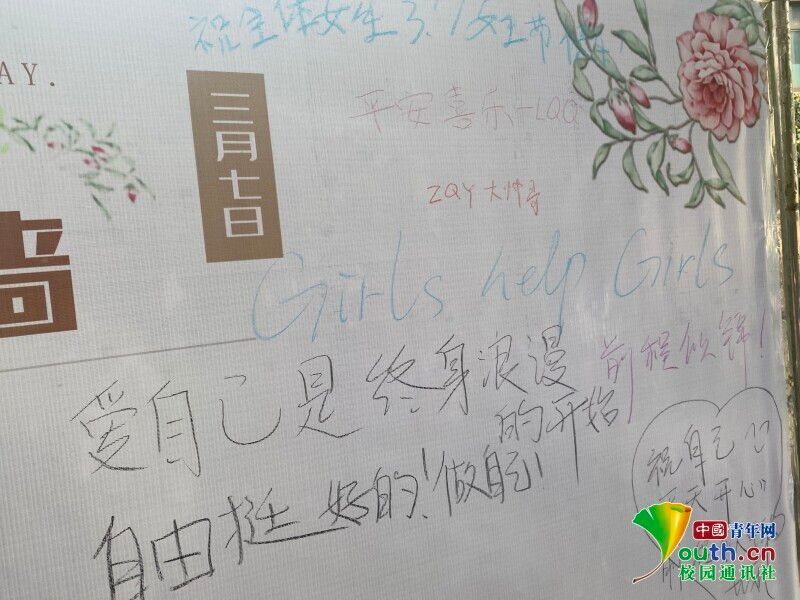 祝全体女生3.7女生节快乐
AY.
三月七日
平安喜乐-LQQ
ZQY 大帅哥
墙
Girls help Girls
前程似锦!
爱自己是终身浪漫
的开始
自由挺好的!做自己!
祝自己
天天开心
中國青年网
Youth.cn
校园通讯社